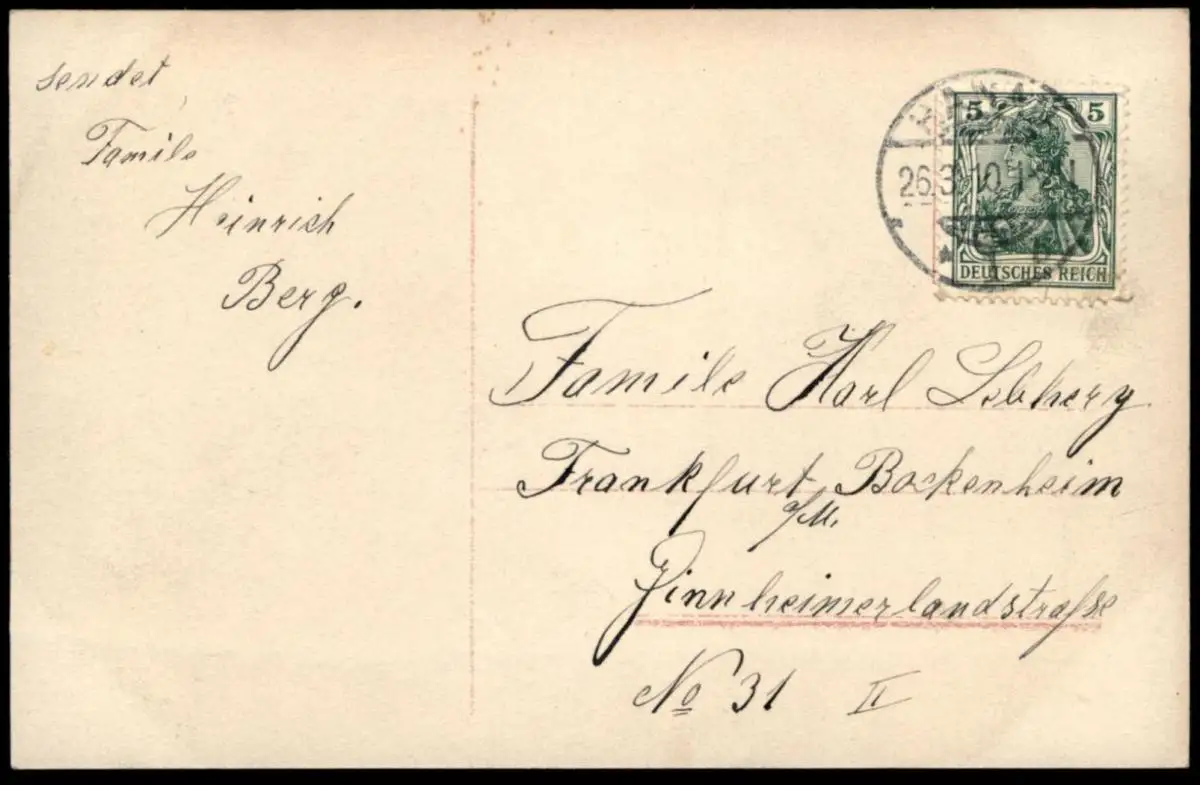 sendet
Famile
Heinrich
Berg.
5 5
HANAU
26.3.10.
DEUTSCHES REICH
Familie Karl
Frankfurt Bockenheim
a/M.
Zinnheimerlandstraße
No 31 II